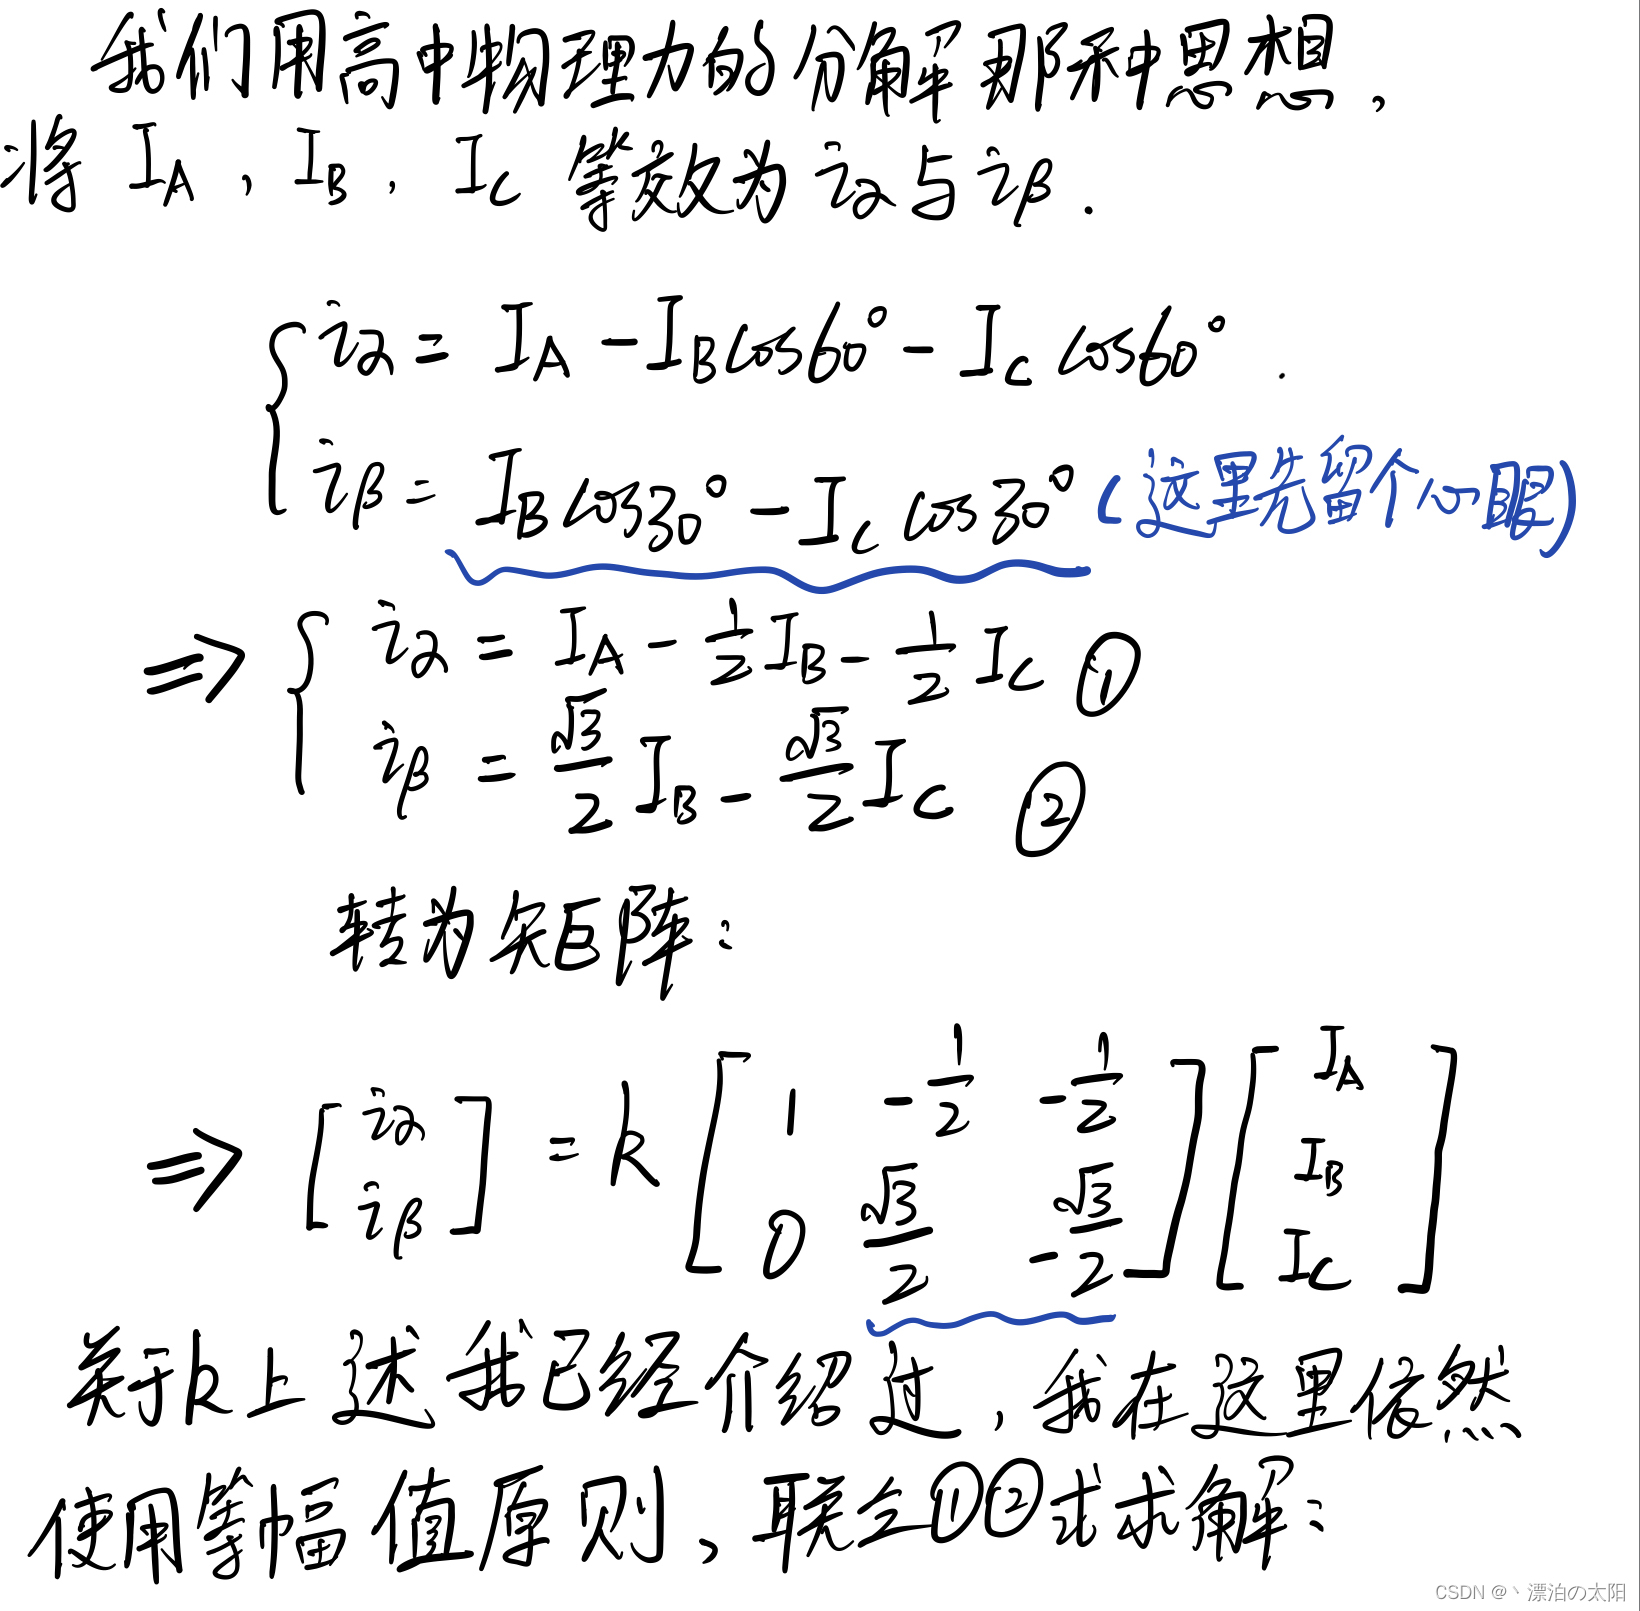 我们用高中物理力的分解那种思想,
将 I_A , I_B , I_C 等效为 i_α 与 i_β .
{ i_α = I_A - I_B cos60° - I_C cos60° .
i_β = I_B cos30° - I_C cos30° (这里先留个心眼)
⇒ { i_α = I_A - 1/2 I_B - 1/2 I_C ①
i_β = √3/2 I_B - √3/2 I_C ②
转为矩阵:
⇒ [ i_α ; i_β ] = k [ 1 -1/2 -1/2 ; 0 √3/2 -√3/2 ] [ I_A ; I_B ; I_C ]
关于k上述我已经介绍过,我在这里依然
使用等幅值原则、联立①②式求解:
CSDN @丶漂泊の太阳